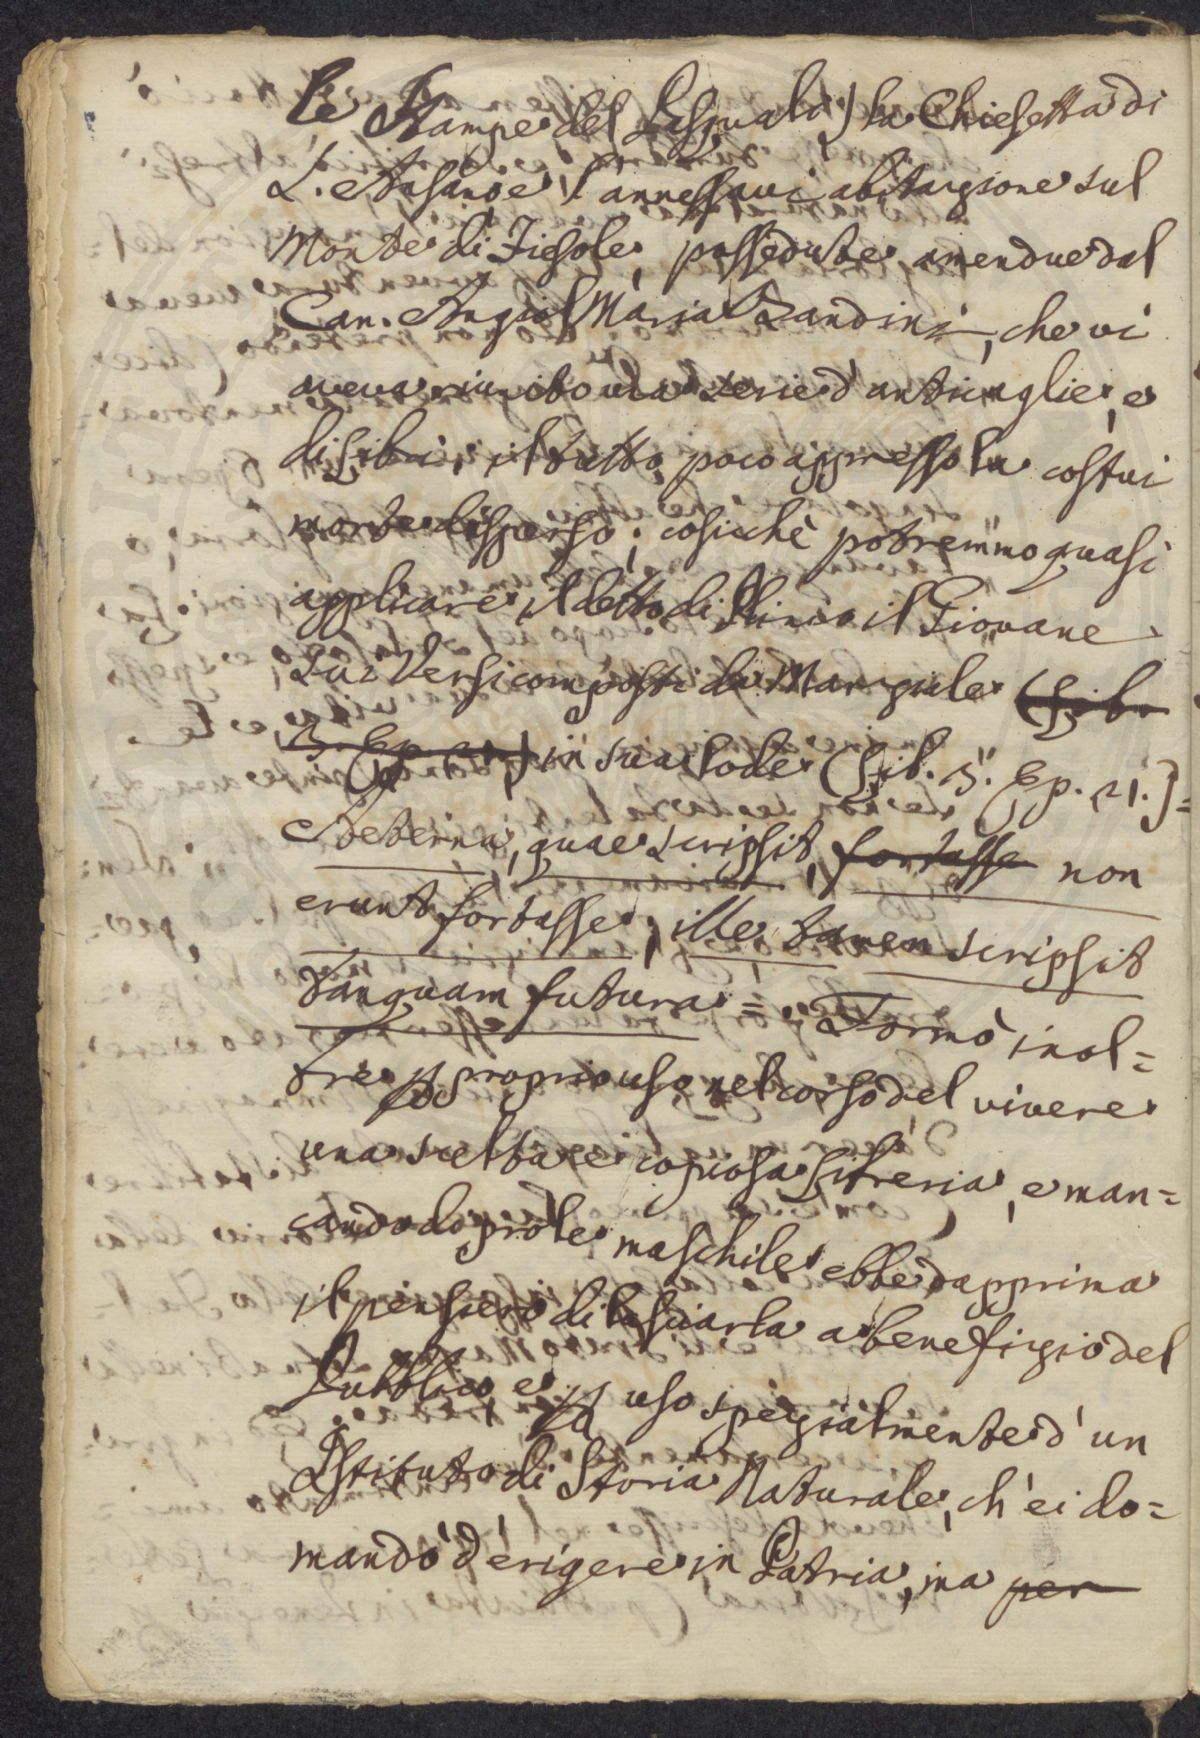 le Stampe del Pasquali) la Chiesetta di
S. Ansano e l'annessavi abitazione sul
Monte di Fiesole, possedute amendue dal
Can. Angiol Maria Bandini, che vi
aveva riunito una serie d'anticaglie, e
di Libri, il tutto poco appresso la costui
morte disperso; cosicchè potremmo quasi
applicare il detto di Plinio il Giovane
sui Versi composti da Marziale (Lib.
3. Ep. 21.) in sua lode (Lib. 3. Ep. 21.)=
Aeterna, quae scripsit, fortasse non
erunt fortasse; ille tamen scripsit
tanquam futura = Formò inol=
tre p proprio uso nel corso del vivere
una scelta e copiosa Libreria, e man=
cando di prole maschile ebbe dapprima
il pensiero di lasciarla a benefizio del
Pubblico, e p uso spezialmente d'un
Istituto di Storia Naturale, ch'ei do=
mandò d'erigere in Patria, ma per